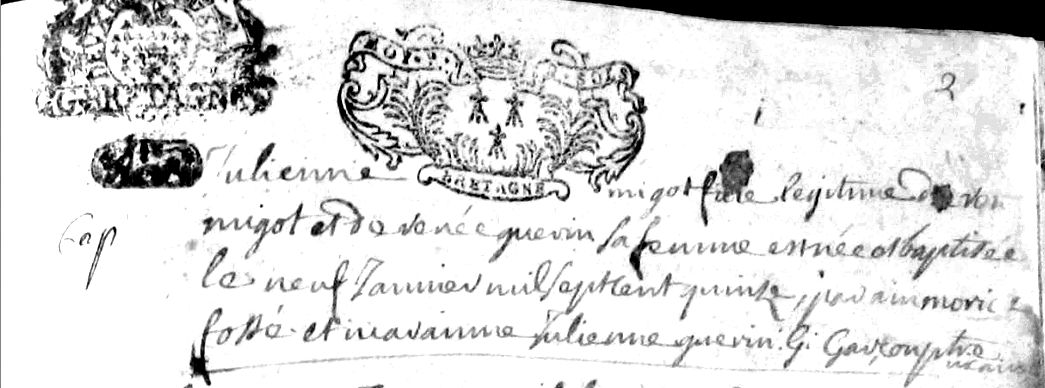 2
BRETAGNE
SOLS
BRETAGNE
Julienne migot fille legitime de
Bap
migot et de renée guerin sa femme est née et baptisée
le neuf Janvier mil sept cent quinze, parain moric
fossé et maraine Julienne guerin. G. Garçon ptre